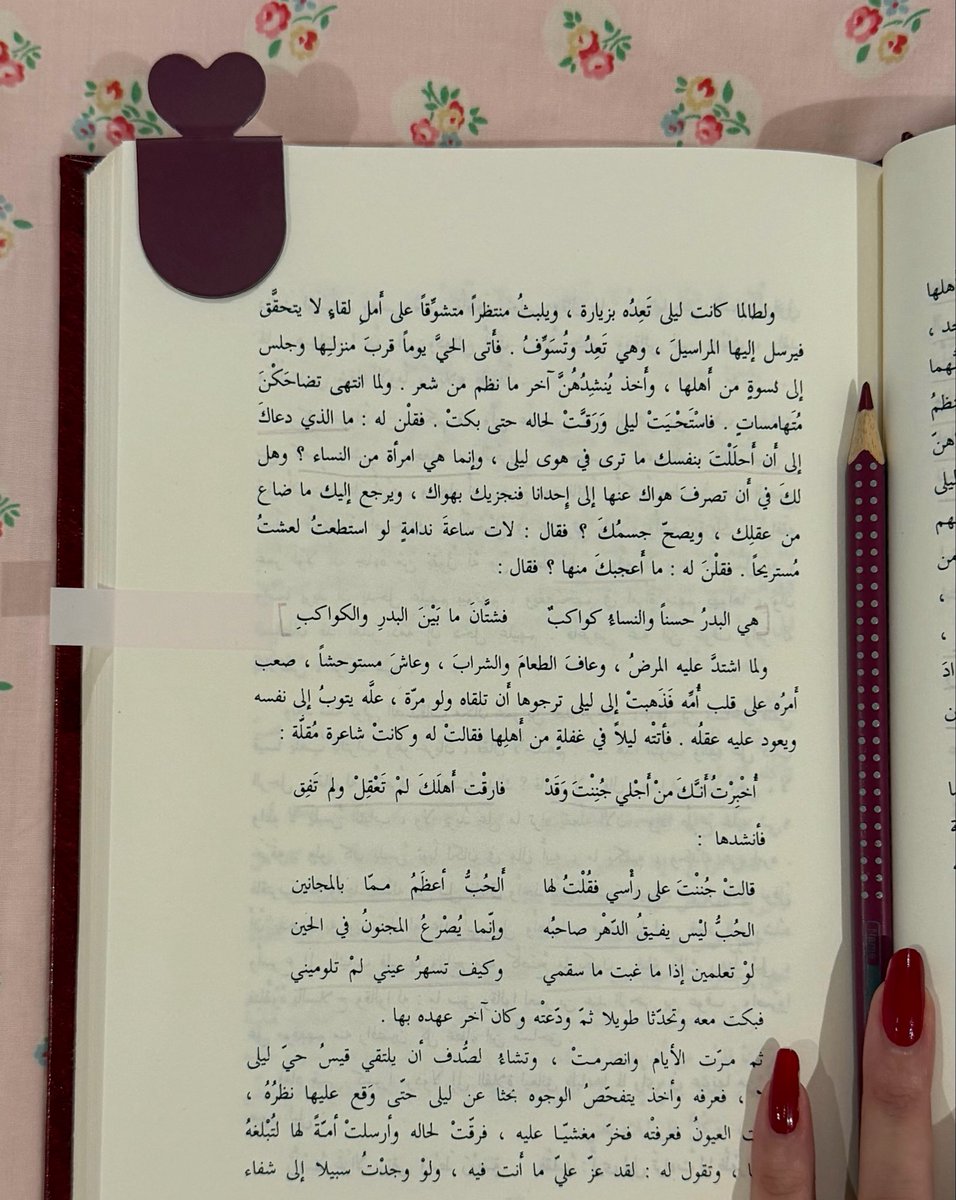 ولطالما كانت ليلى تَعِدُه بزيارة ، ويلبثُ منتظراً متشوِّقاً على أَملِ لقاءٍ لا يتحقَّق
فيرسل إليها المراسيلَ ، وهي تَعِدُ وتُسَوِّفُ . فأَتى الحيَّ يوماً قربَ منزلها وجلس
إلى نسوةٍ من أَهلها ، وأَخذ يُنشِدُهُنَّ آخر ما نظم من شعر . ولما انتهى تضاحَكْنَ
مُتَهامساتٍ . فاسْتَحْيَتْ ليلى وَرَقَّتْ لحاله حتى بكتْ . فقلْن له : ما الذي دعاكَ
إلى أَن أَحلَلْتَ بنفسك ما ترى في هوى ليلى ، وإنما هي امرأة من النساء ؟ وهل
لكَ في أَن تصرفَ هواك عنها إلى إِحدانا فنجزيك بهواك ، ويرجع إليك ما ضاع
من عقلِك ، ويصحّ جسمُكَ ؟ فقال : لات ساعةَ ندامةٍ لو استطعتُ لعشتُ
مُستريحاً . فقلْنَ له : ما أَعجبكَ منها ؟ فقال :
[هي البدرُ حسناً والنساءُ كواكبٌ فشتَّانَ ما بَيْنَ البدرِ والكواكبِ]
ولما اشتدَّ عليه المرضُ ، وعافَ الطعامَ والشرابَ ، وعاشَ مستوحشاً ، صعب
أَمرُه على قلب أُمِّه فَذَهبتْ إلى ليلى ترجوها أَن تلقاه ولو مرّة ، علَّه يتوبُ إلى نفسه
ويعود عليه عقلُه . فأتتْه ليلاً في غفلةٍ من أَهلِها فقالتْ له وكانتْ شاعرة مُقلَّة :
أُخبِرْتُ أَنَّكَ مِنْ أَجْلي جُنِنْتَ وَقَدْ فارقْت أَهلَكَ لمْ تَعْقِلْ ولم تَفِق
فأنشدها :
قالتْ جُنِنْتَ على رأْسي فقُلْتُ لها أَلحُبُّ أعظَمُ ممّا بالمجانين
الحُبُّ ليْس يفيقُ الدّهْر صاحبُه وإنّما يُصْرعُ المجنونُ في الحين
لوْ تعلمين إذا ما غبت ما سقمي وكيف تسهرُ عيني لمْ تلوميني
فبكت معه وتحدّثا طويلا ثمّ ودّعتْه وكان آخر عهده بها .
ثم مرّت الأيام وانصرمتْ ، وتشاءُ لصُّدف أن يلتقي قيسُ حيّ ليلى
، فعرفه وأخذ يتفحّصُ الوجوه بحثا عن ليلى حتّى وَقع عليها نظرُهُ ،
العيونُ فعرفتْه فخرّ مغشيّا عليه ، فرقّتْ لحاله وأرسلتْ أمَةً لها لتُبْلغهُ
، وتقول له : لقد عزّ عليّ ما أنت فيه ، ولوْ وجدْتُ سبيلا إلى شفاء